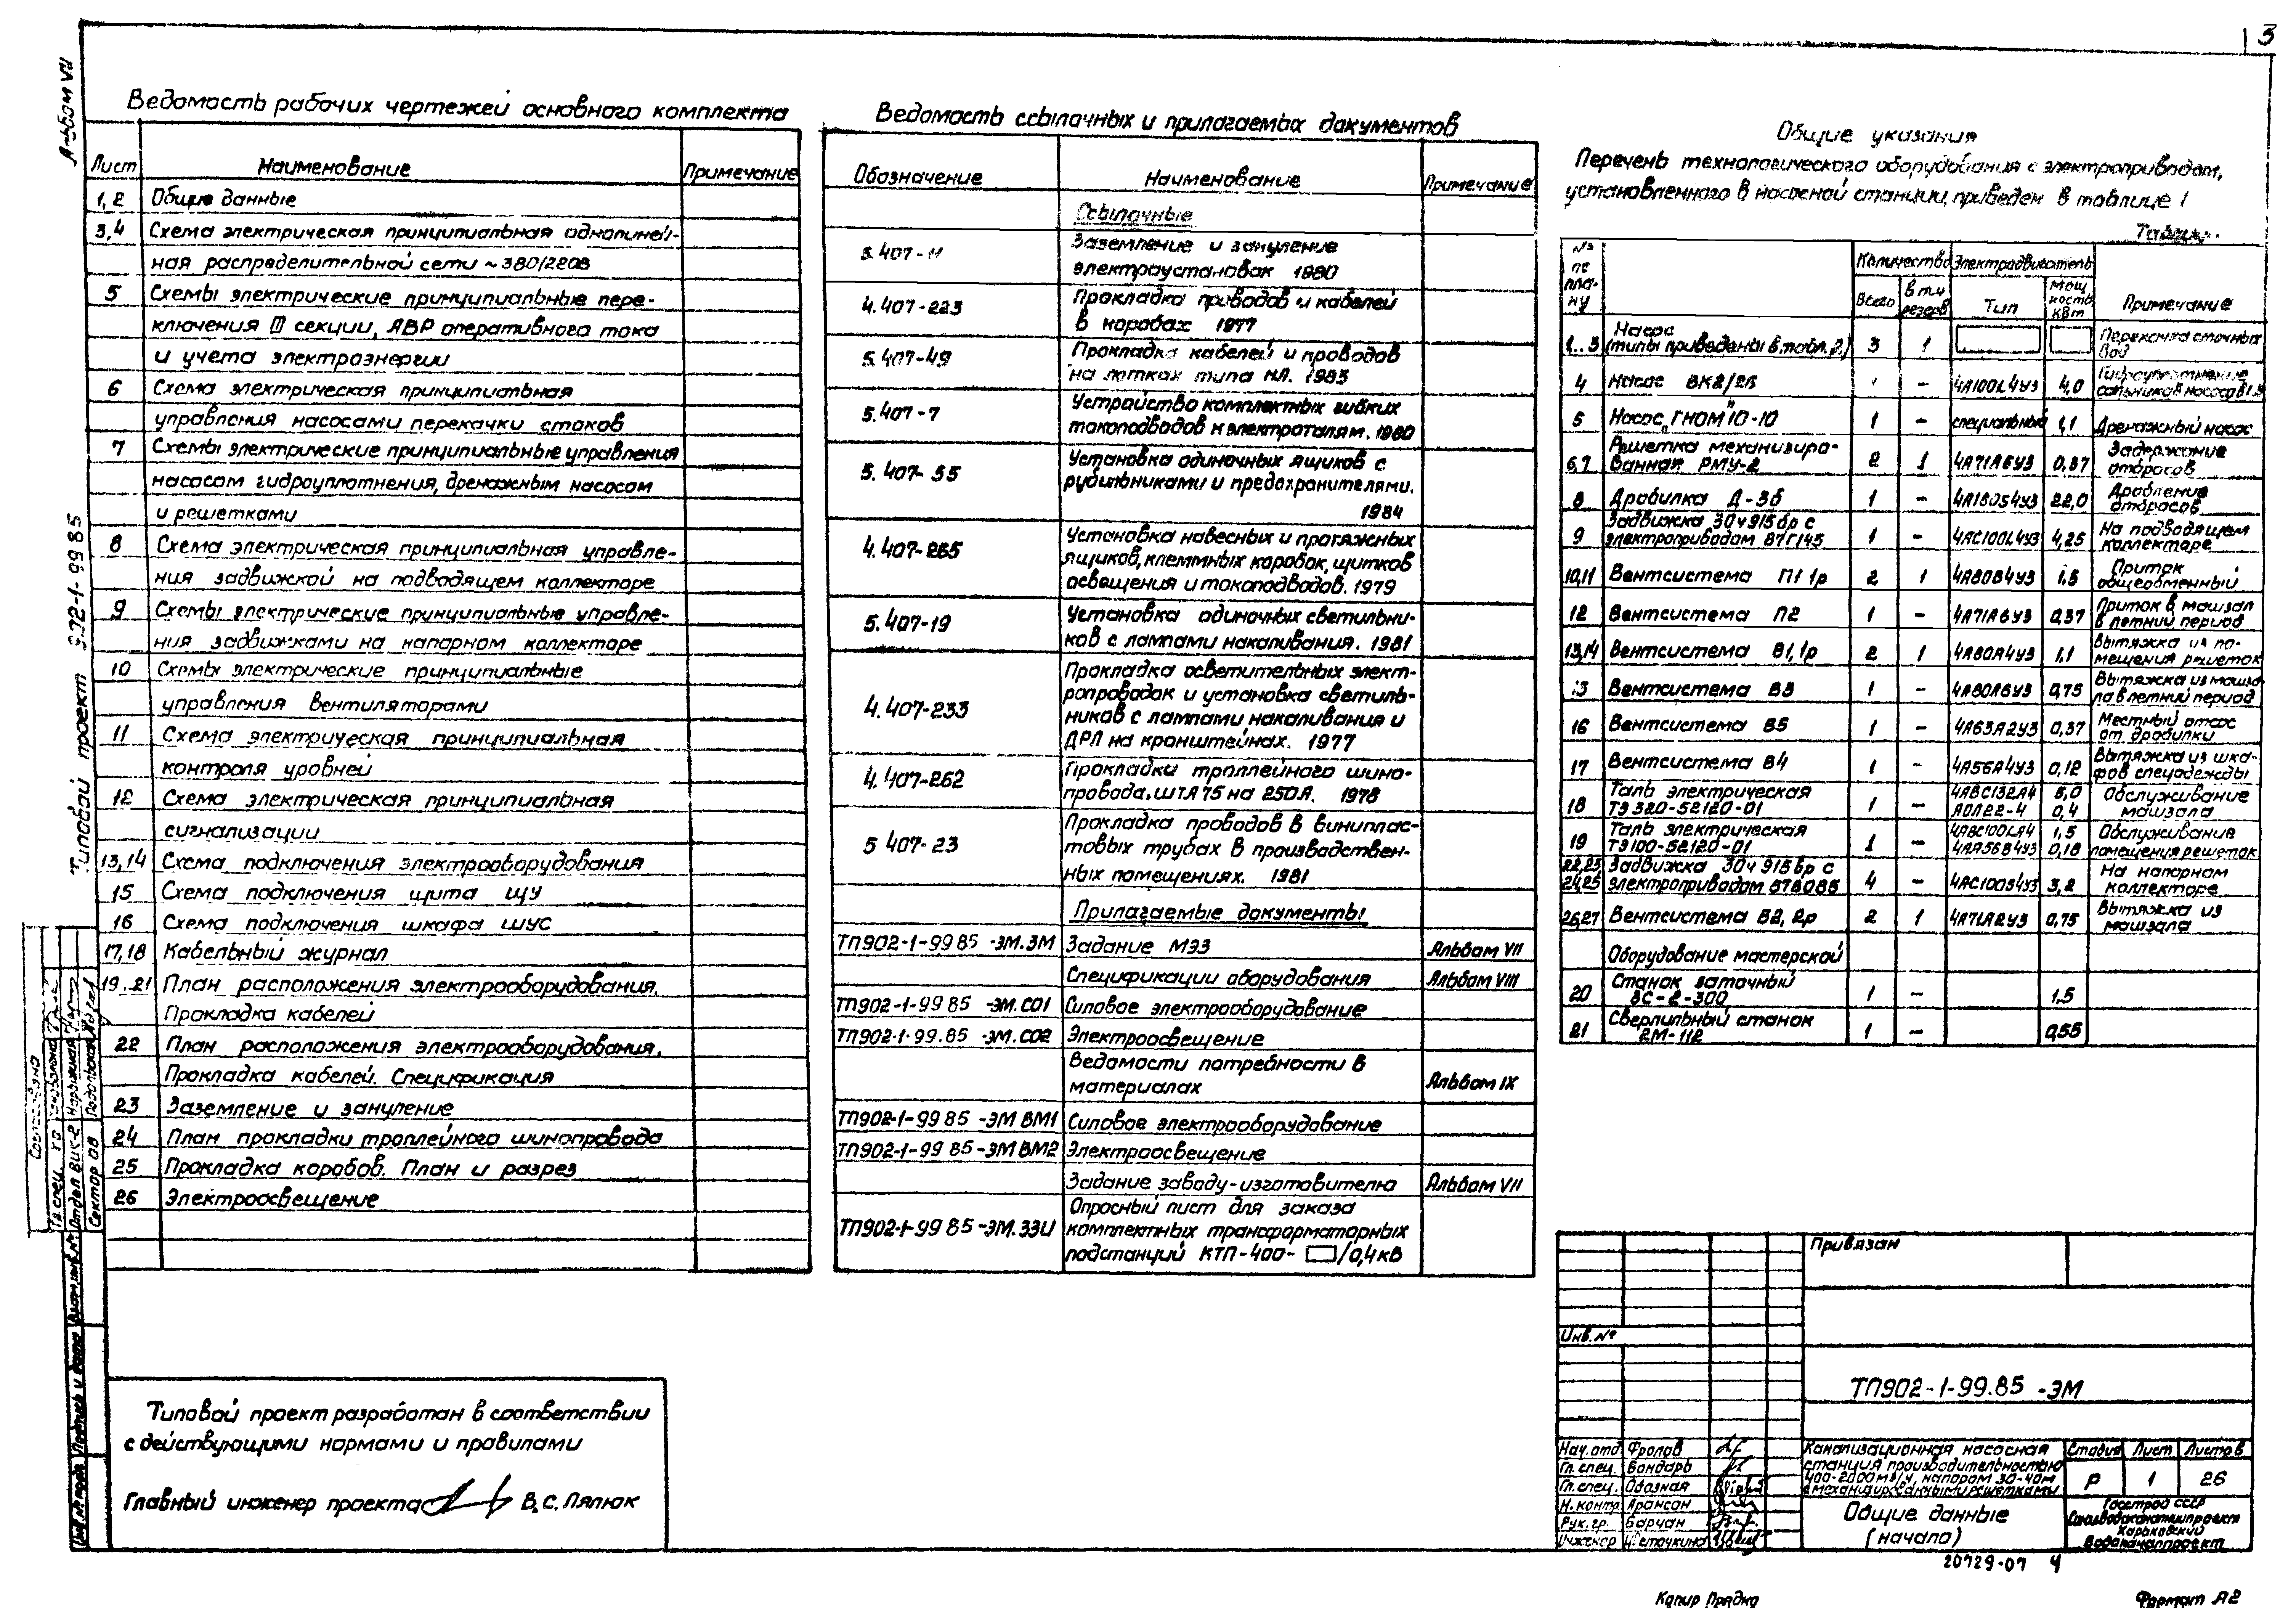 3
Альбом VII
Типовой проект 902-1-99 85
Ведомость рабочих чертежей основного комплекта
Лист Наименование Примечание
1,2 Общие данные
3,4 Схема электрическая принципиальная однолиней-
ная распределительной сети ~380/220В
5 Схемы электрические принципиальные пере-
ключения III секции, АВР оперативного тока
и учета электроэнергии
6 Схема электрическая принципиальная
управления насосами перекачки стоков
7 Схемы электрические принципиальные управления
насосом гидроуплотнения, дренажным насосом
и решетками
8 Схема электрическая принципиальная управле-
ния задвижкой на подводящем коллекторе
9 Схемы электрические принципиальные управле-
ния задвижками на напорном коллекторе
10 Схемы электрические принципиальные
управления вентиляторами
11 Схема электрическая принципиальная
контроля уровней
12 Схема электрическая принципиальная
сигнализации
13,14 Схема подключения электрооборудования
15 Схема подключения щита ЩУ
16 Схема подключения шкафа ШУС
17,18 Кабельный журнал
19..21 План расположения электрооборудования.
Прокладка кабелей
22 План расположения электрооборудования.
Прокладка кабелей. Спецификация
23 Заземление и зануление
24 План прокладки троллейного шинопровода
25 Прокладка коробов. План и разрез
26 Электроосвещение
Ведомость ссылочных и прилагаемых документов
Обозначение Наименование Примечание
Ссылочные
5.407-11 Заземление и зануление
электроустановок 1980
4.407-223 Прокладка проводов и кабелей
в коробах 1977
5.407-49 Прокладка кабелей и проводов
на лотках типа НЛ. 1983
5.407-7 Устройство комплектных гибких
токоподводов к электроталям. 1980
5.407-55 Установка одиночных ящиков с
рубильниками и предохранителями.
1984
4.407-265 Установка навесных и протяжных
ящиков, клеммных коробок, щитков
освещения и токоподводов. 1979
5.407-19 Установка одиночных светильни-
ков с лампами накаливания. 1981
4.407-233 Прокладка осветительных элект-
ропроводок и установка светиль-
ников с лампами накаливания и
ДРЛ на кронштейнах. 1977
4.407-262 Прокладка троллейного шино-
провода ШТА75 на 250А. 1978
5 407-23 Прокладка проводов в винилплас-
товых трубах в производствен-
ных помещениях. 1981
Прилагаемые документы
ТП902-1-99 85 -ЭМ.ЗМ Задание МЭЗ Альбом VII
Спецификации оборудования Альбом VIII
ТП902-1-99 85 -ЭМ.СО1 Силовое электрооборудование
ТП902-1-99.85 -ЭМ.СО2 Электроосвещение
Ведомости потребности в
материалах Альбом IX
ТП902-1-99 85 -ЭМ ВМ1 Силовое электрооборудование
ТП902-1-99 85 -ЭМ ВМ2 Электроосвещение
Задание заводу-изготовителю Альбом VII
ТП902-1-99 85 -ЭМ.ЗЗИ Опросный лист для заказа
комплектных трансформаторных
подстанций КТП-400- /0,4кВ
Общие указания
Перечень технологического оборудования с электроприводом,
установленного в насосной станции, приведен в таблице 1
№ по плану Количество Электродвигатель Примечание
Всего в т.ч. резерв Тип мощность кВт
1..3 Насос (типы приведены в табл. 2) 3 1 Перекачка сточных вод
4 Насос ВК2/26 - 4А100L4У3 4,0 Гидроуплотнение сальников насосов 1..3
5 Насос „ГНОМ" 10-10 1 - специальный 1,1 Дренажный насос
6,7 Решетка механизиро-ванная РМУ-2 2 1 4А71А6У3 0,37 Задержание отбросов
8 Дробилка Д-3б 1 - 4А180S4У3 22,0 Дробление отбросов
9 Задвижка 30ч915бр с электроприводом 87Г145 1 - 4АС100L4У3 4,25 На подводящем коллекторе
10,11 Вентсистема П1 1р 2 1 4А80В4У3 1,5 Приток общеобменный
12 Вентсистема П2 1 - 4А71А6У3 0,37 Приток в машзал в летний период
13,14 Вентсистема В1,1р 2 1 4А80А4У3 1,1 Вытяжка из по-мещения решеток
15 Вентсистема В3 1 - 4А80А6У3 0,75 Вытяжка из машза-ла в летний период
16 Вентсистема В5 1 - 4А63А2У3 0,37 Местный отсос от дробилки
17 Вентсистема В4 1 - 4А56А4У3 0,12 Вытяжка из шка-фов спецодежды
18 Таль электрическая ТЭ 320-52120-01 1 - 4АВС132А4 5,0 АОЛ22-4 0,4 Обслуживание машзала
19 Таль электрическая ТЭ100-52120-01 1 - 4АВС100LА4 1,5 4АА56В4У3 0,18 Обслуживание помещения решеток
22,23 24,25 Задвижка 30ч915бр с электроприводом 87В085 4 - 4АС100S4У3 3,2 На напорном коллекторе
26,27 Вентсистема В2, 2р 2 1 4А71А2У3 0,75 Вытяжка из машзала
Оборудование мастерской
20 Станок заточный ЗС-2-300 1 - 1,5
21 Сверлильный станок 2М-112 1 - 0,55
Типовой проект разработан в соответствии
с действующими нормами и правилами
Главный инженер проекта В.С. Ляпюк
Привязан
Инв. №
ТП902-1-99.85 -ЭМ
Нач. отд Фролов
Гл. спец. Бондарь
Гл. спец.
Н. контр. Аронсон
Рук. гр. Барчан
Инженер
Канализационная насосная
станция производительностью
400-2000м3/ч, напором 30-40м
с механизированными решетками
Стадия Лист Листов
Р 1 26
Общие данные
(начало)
Госстрой СССР
Союзводоканалниипроект
Харьковский
Водоканалпроект
20729-07 4
Копир Прядко Формат А2